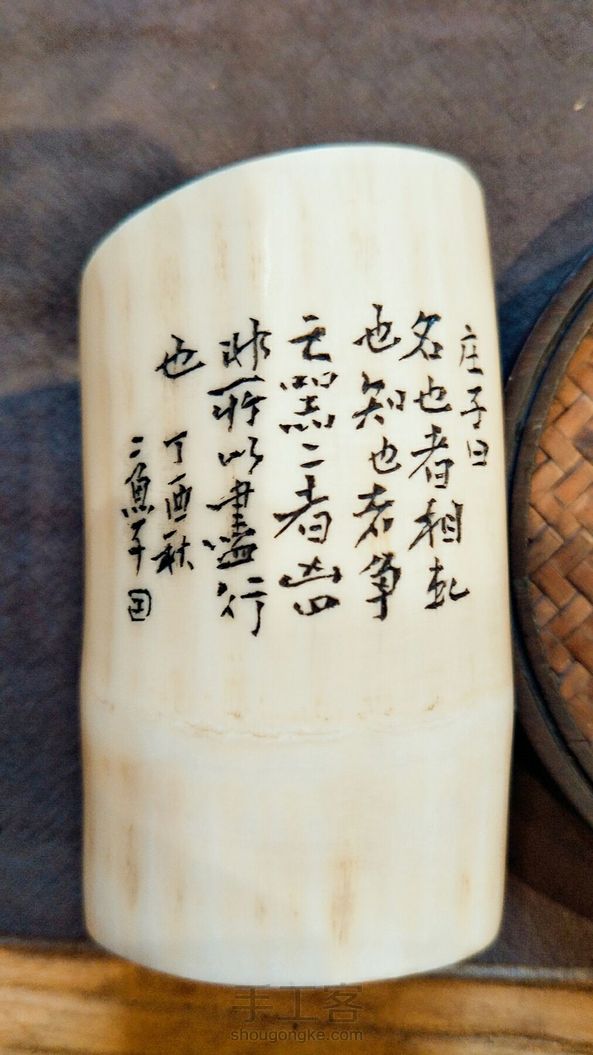 庄子曰
名也者相軋
也知也者争
之器二者凶
非所以盡行
也 丁酉秋
二魚子
手工客
shougongke.com